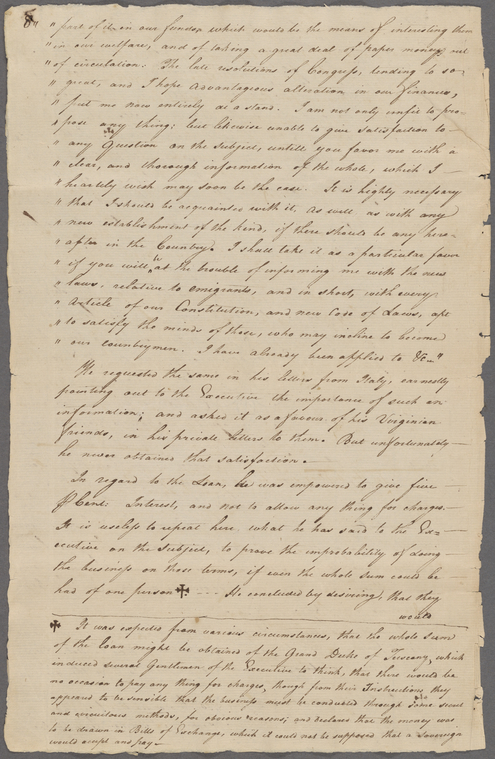 8
" part of it in our funds, which would be the means of interesting them
" in our welfare, and of taking a great deal of paper money out
" of circulation. The late resolutions of Congress, tending to so
" great, and I hope advantagious alteration in our finances,
" put me now entirely at a stand. I am not only unfit to pro-
" pose any thing; but likewise unable to give satisfaction to
" any Question on the Subject, untill you favor me with a
" clear, and thorough information of the whole, which I
" heartily wish may soon be the case. It is highly necessary
" that I should be acquainted with it, as well as with any
" new establishment of the kind, if there should be any here-
" after in the Country. I shall take it as a particular favor
" if you will at the trouble of informing me with the new
" laws, relative to emigrants, and in short, with every
" Article of our Constitution, and new Code of Laws, apt
" to satisfy the minds of those, who may incline to become
" our countrymen. I have already been applied to &c—"
He requested the same in his letters from Italy, earnestly
pointing out to the Executive the importance of such an
information; and asked it as a favour of his Virginian
friends, in his private letters to them. But unfortunately
he never obtained that satisfaction.—
In regard to the Loan, he was empowered to give five
P Cent. Interest, and not to allow any thing for charges.—
It is useless to repeat here what he has said to the Ex-
ecutive on the subject, to prove the improbability of doing
the business on those terms, if even the whole sum could be
had of one person ✠ --- He concluded by desiring, that they
would
✠ It was expected from various circumstances, that the whole Sum
of the Loan might be obtained of the Grand Duke of Tuscany, which
induced several Gentlemen of the Executive to think, that there would be
no occasion to pay any thing for charges, though from their Instructions they
appeared to be sensible that the business must be conducted through some secret
and circuitous methods, for obvious reasons; and declares that the money was
to be drawn in Bills of Exchange, which it could not be supposed that a Sovereign
would accept and pay.—